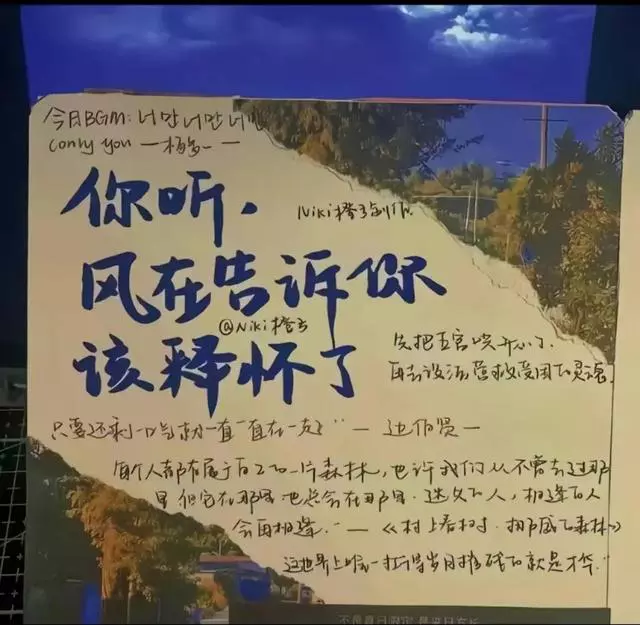 今日BGM: 너만너만너만
(only you — 杨多一 —
你听，
Niki橙子创作
风在告诉你
@Niki橙子
该释怀了
先把五官哄开心了，
再去设法营救受困的灵魂
只要还剩一口气就一直“直在一起” — 边伯贤 —
每个人都有属于自己的一片森林，也许我们从不曾去过那
里但它在那里也总会在那里。迷失的人，相逢的人
会再相逢.” — 《村上春树·挪威的森林》
这世界上唯一扛得岁月摧残的就是才华.”